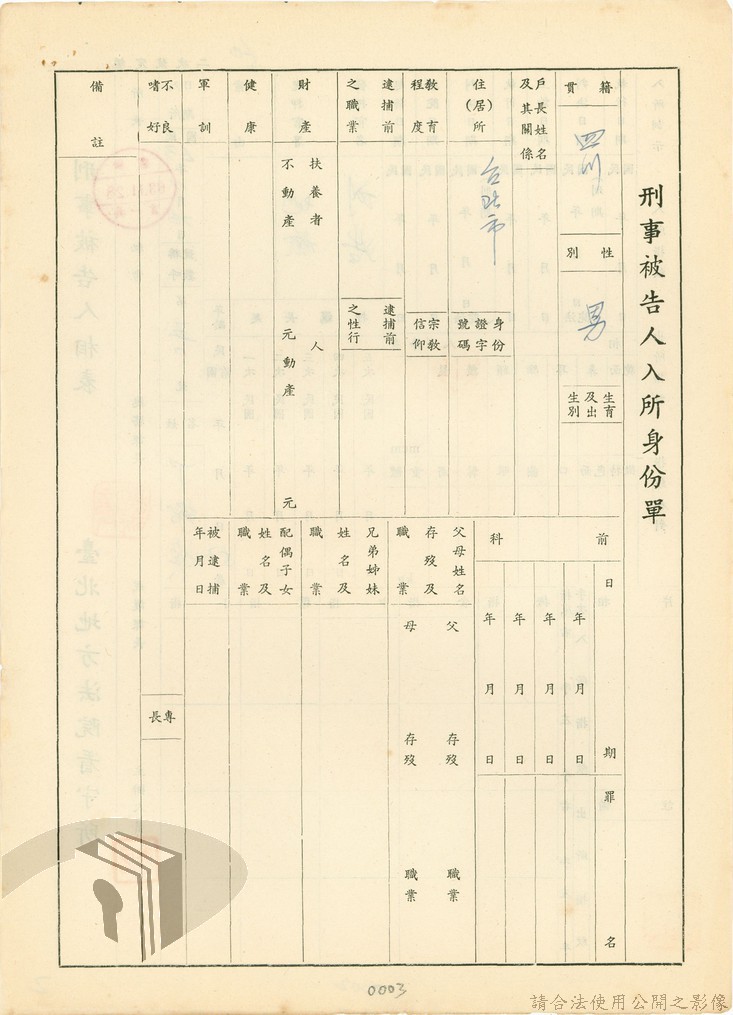 刑事被告人入所身份單
籍貫
四川
性別
男
生育及出生別
戶長姓名及其關係
住(居)所
台北市
身份證字號碼
教育程度
宗教信仰
逮捕前之職業
逮捕前之性行
財產
扶養者 人
不動產 元
動產 元
健康
軍訓
不良嗜好
備註
前科
日期
年 月 日
年 月 日
年 月 日
年 月 日
罪名
父母姓名存歿及職業
父 存歿 職業
母 存歿 職業
兄弟姊妹姓名及職業
配偶子女姓名及職業
被逮捕年月日
專長
0003
請合法使用公開之影像